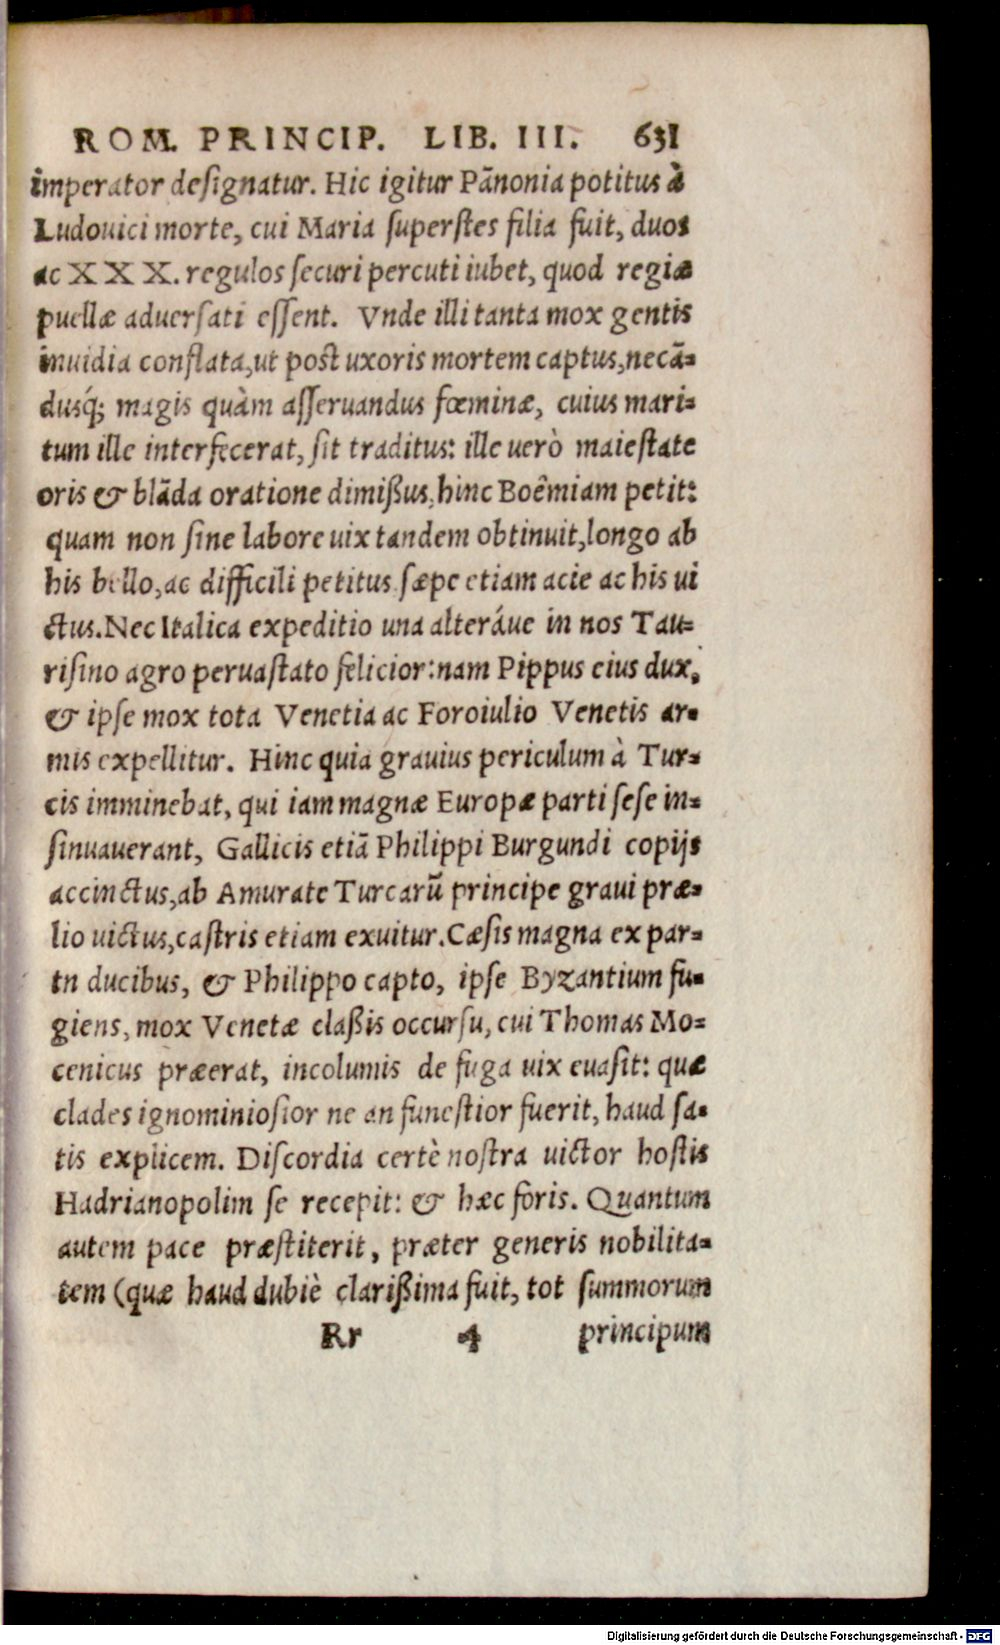 ROM. PRINCIP. LIB. III. 631
imperator deſignatur. Hic igitur Pãnonia potitus à
Ludouici morte, cui Maria ſuperſtes filia fuit, duos
ac XXX. regulos ſecuri percuti iubet, quod regiæ
puellæ aduerſati eſſent. Vnde illi tanta mox gentis
inuidia conflata, ut poſt uxoris mortem captus, necã=
dusq́; magis quàm aſſeruandus fœminæ, cuius mari=
tum ille interfecerat, ſit traditus: ille uerò maieſtate
oris & blãda oratione dimiſſus, hinc Boêmiam petit:
quam non ſine labore uix tandem obtinuit, longo ab
his bello, ac difficili petitus. ſæpe etiam acie ac his ui
ctus. Nec Italica expeditio una alteráue in nos Tau=
riſino agro peruaſtato felicior: nam Pippus eius dux,
& ipſe mox tota Venetia ac Foroiulio Venetis ar=
mis expellitur. Hinc quia grauius periculum à Tur=
cis imminebat, qui iam magnæ Europæ parti ſeſe in=
ſinuauerant, Gallicis etiã Philippi Burgundi copijs
accinctus, ab Amurate Turcarũ principe graui præ=
lio uictus, caſtris etiam exuitur. Cæſis magna ex par=
tn ducibus, & Philippo capto, ipſe Byzantium fu=
giens, mox Venetæ claßis occurſu, cui Thomas Mo=
cenicus præerat, incolumis de fuga uix euaſit: quæ
clades ignominioſior ne an funeſtior fuerit, haud ſa=
tis explicem. Diſcordia certè noſtra uictor hoſtis
Hadrianopolim ſe recepit: & hæc foris. Quantum
autem pace præſtiterit, præter generis nobilita=
tem (quæ haud dubiè clarißima fuit, tot ſummorum
Rr 4 principum
Digitalisierung gefördert durch die Deutsche Forschungsgemeinschaft - DFG